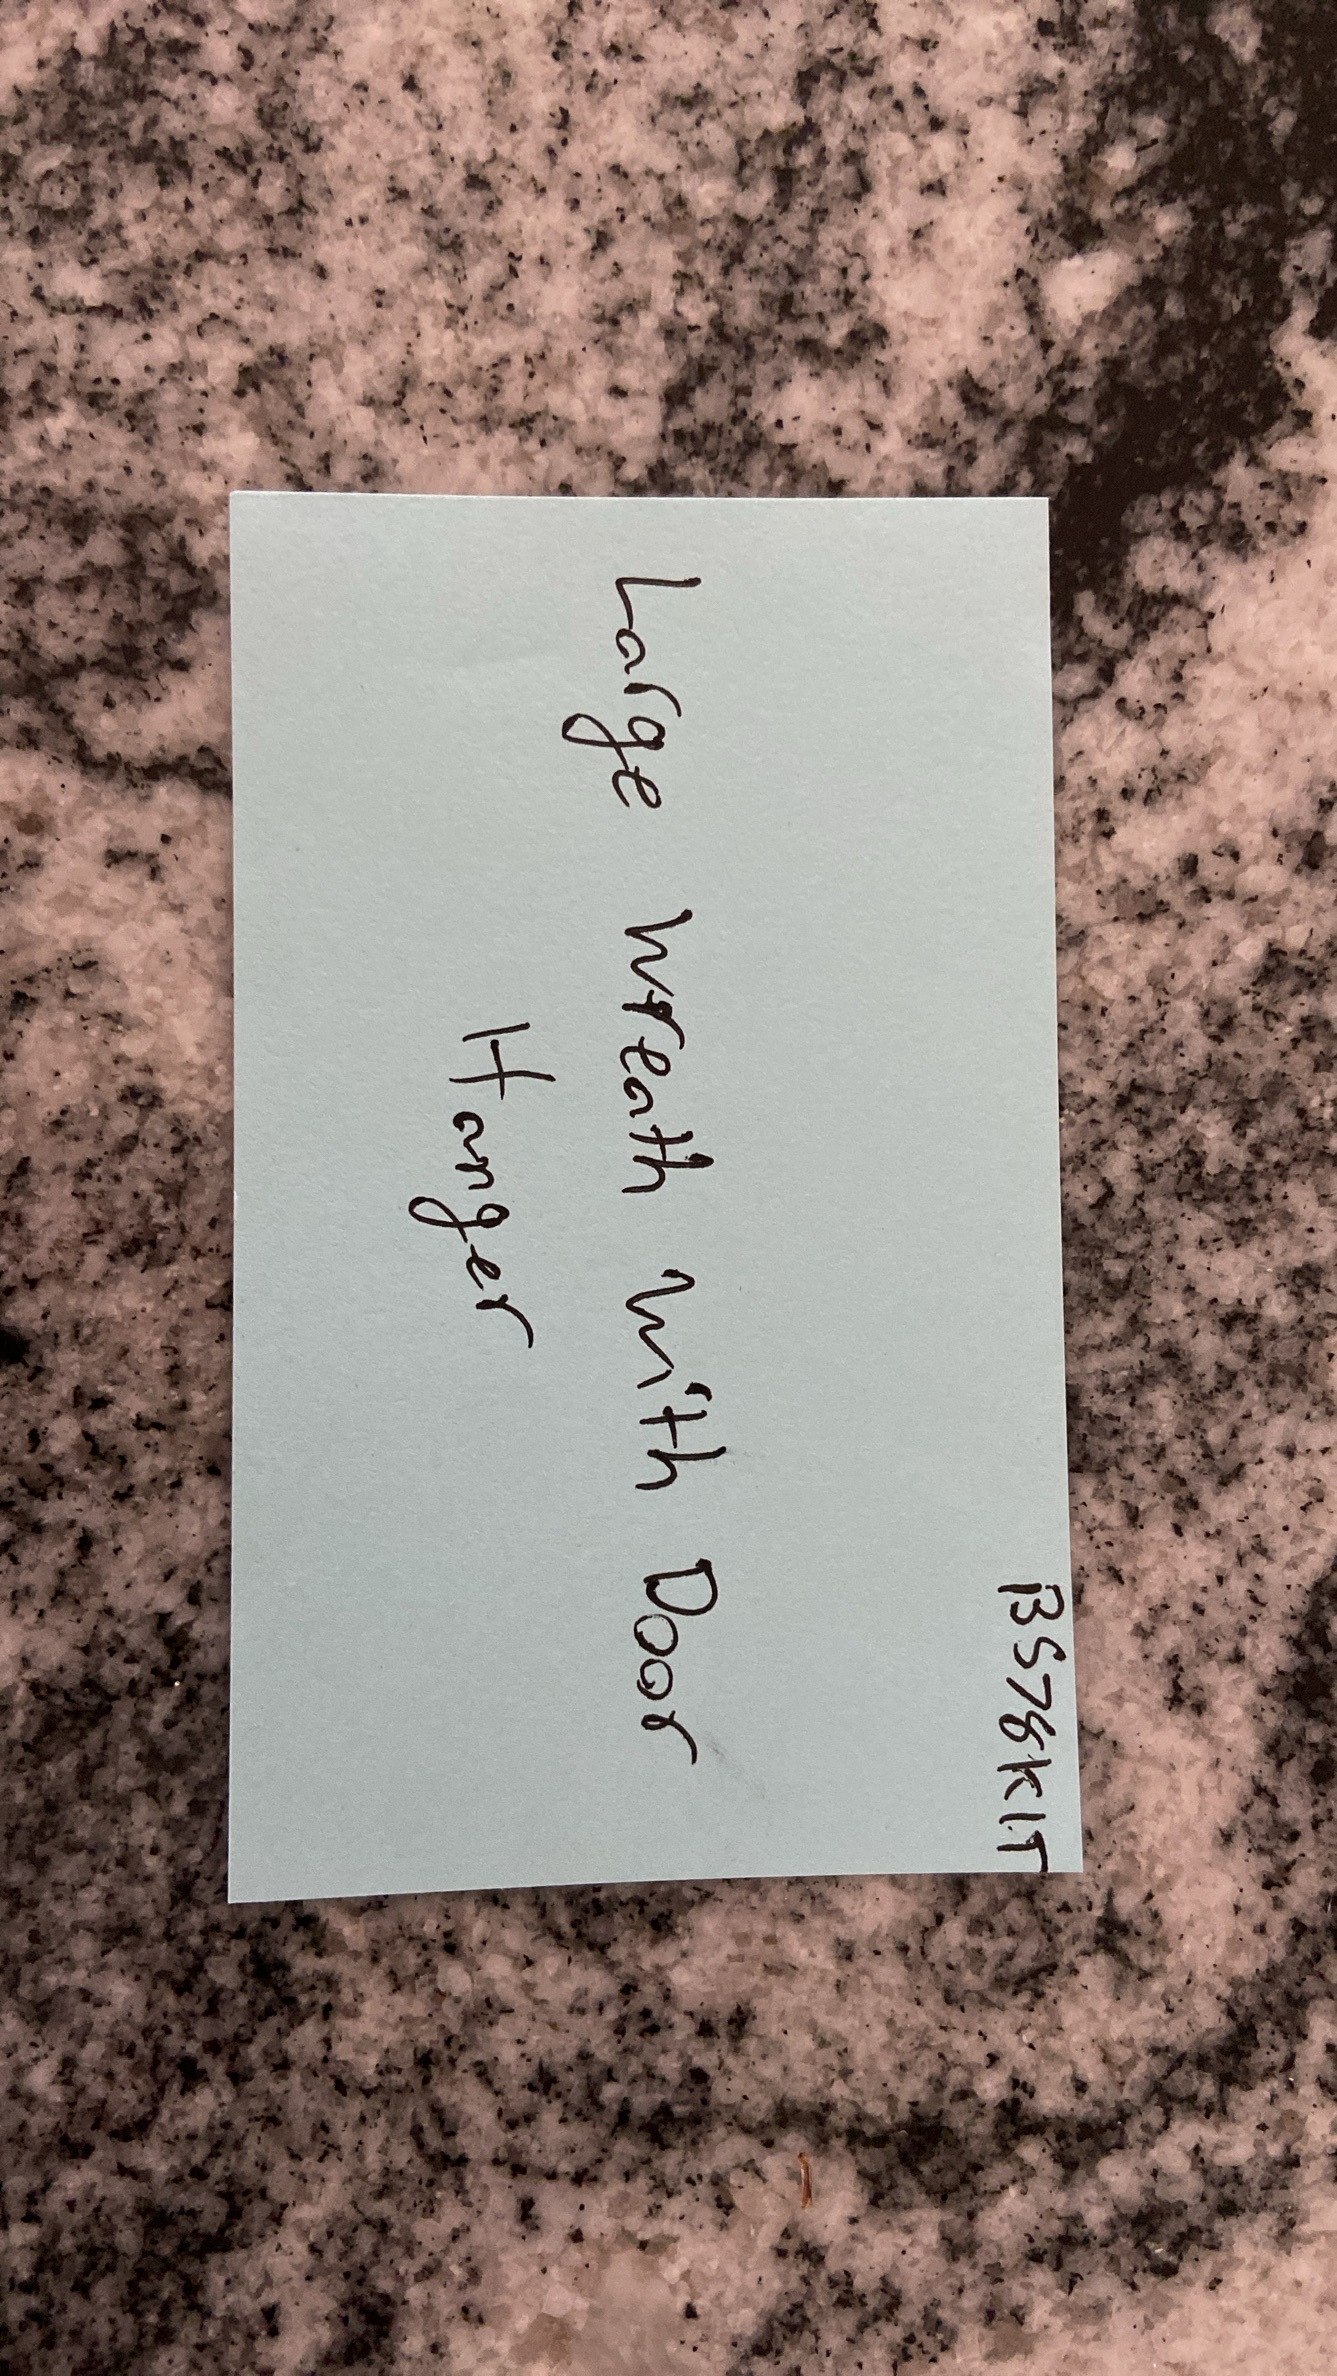 BS78KIT
Large Wreath with Door
Hanger